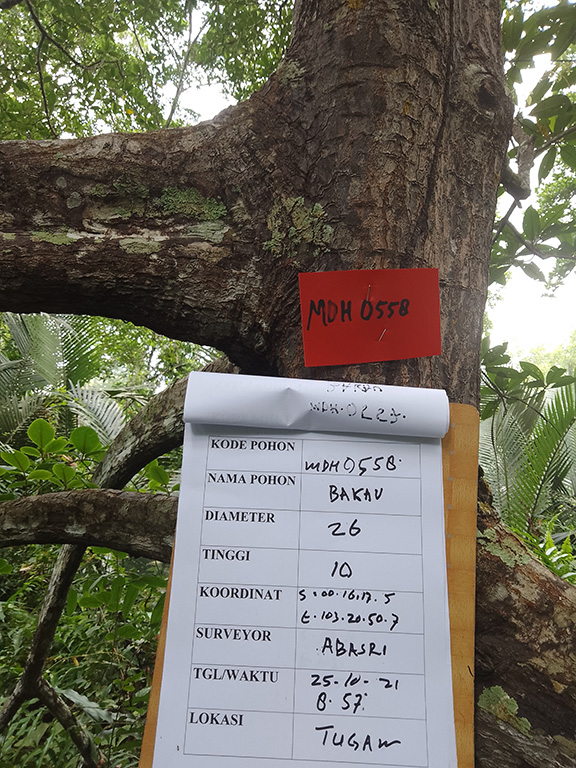 MDH 0558
MDH. 022J.
KODE POHON MDH 0558.
NAMA POHON BAKAU
DIAMETER 26
TINGGI 10
KOORDINAT S:00.16.17.5
E.103.20.50.7
SURVEYOR ABASRI
TGL/WAKTU 25-10-21
8.57.
LOKASI TUGAW